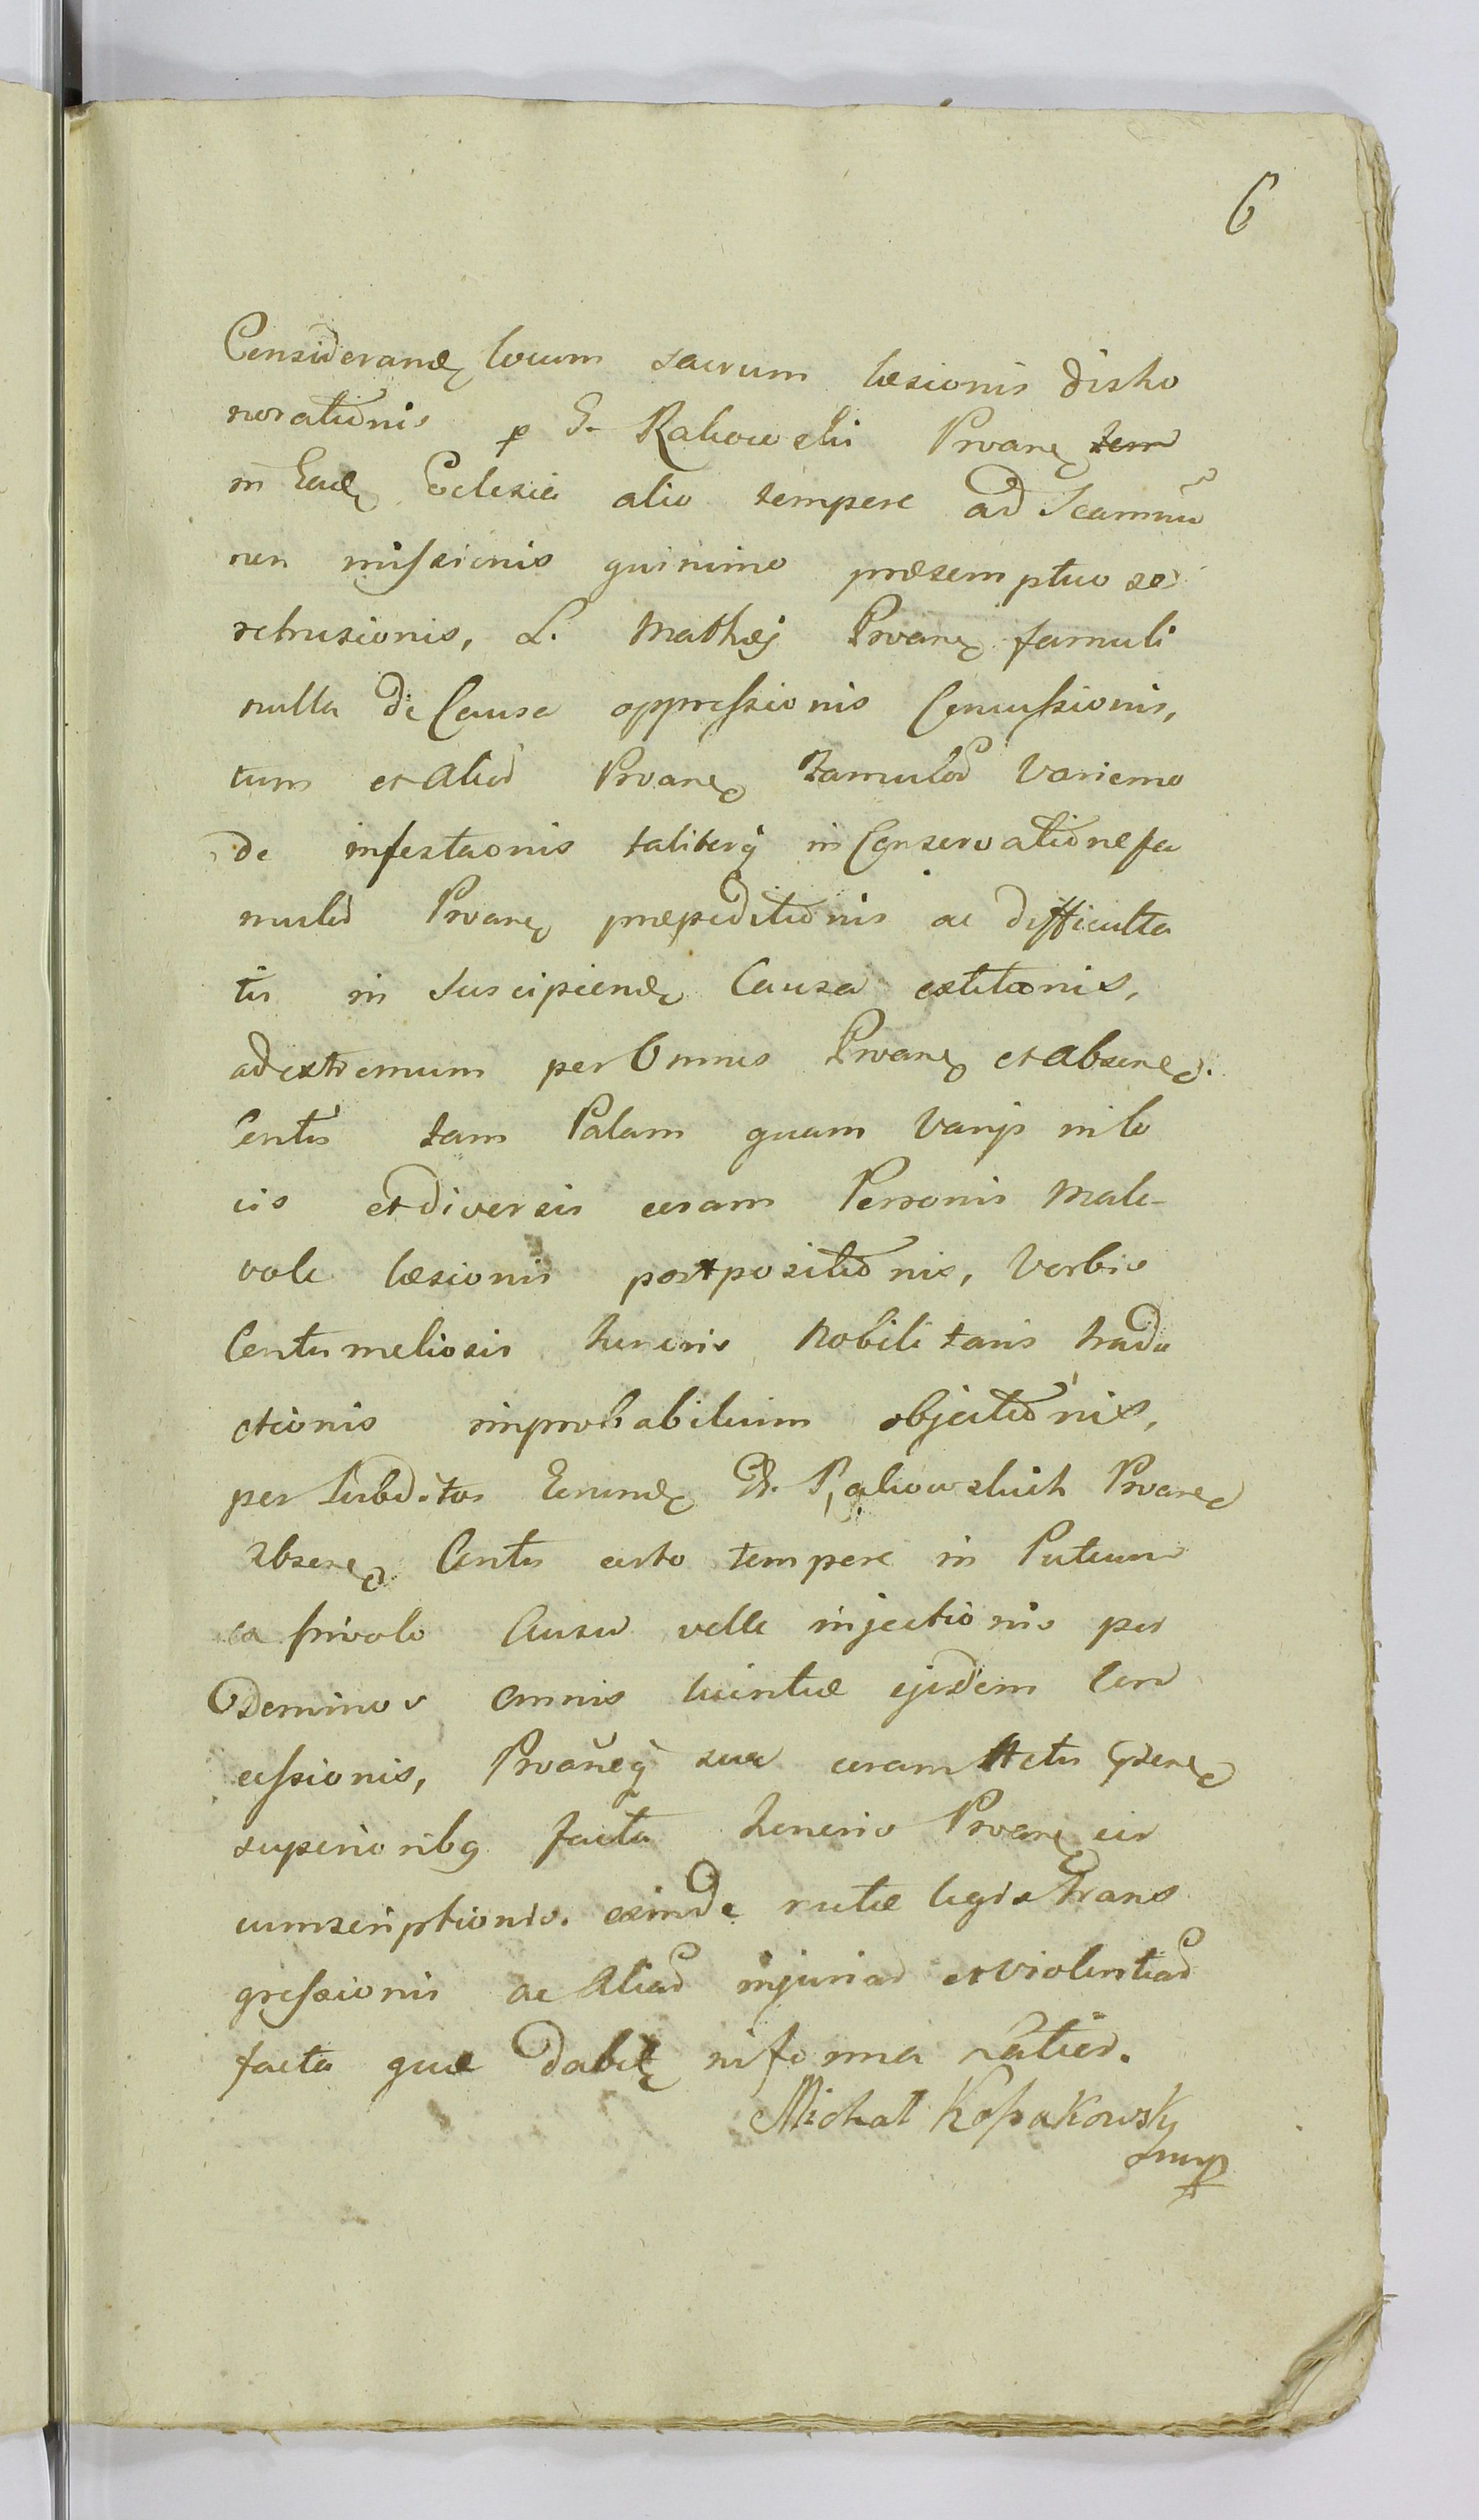 6
Consideranđ locum sacrum læsionis disho
norationis p G. Rakowski Proane tem
in Eade Eclesia alio tempore ad Scamnū
non missionis quinimo præsemptuo se
retrusionis, L. Mathæj Proane famuli
nulla de Causa oppressionis Concussionis,
tum et aliod Proane famulod variomo
de infestaonis taliterq in Conservatione fa
mulod Proane præpeditionis ac difficulta
tis in suscipiende Causa extitaonis,
ad extremum per Omnes Proane et absene
Contis tam Palam quam varijs in lo
cis et diversis coram Personis Male-
vole læsionis postpositionis, verbis
Contumeliosis honoris Nobilitaris tradu
ctionis improbabilium objectionis,
per subditos Eorunde G. Rakowskich Proane
absene Contis certo tempore in Puteum
ea frivolo Ausu velle injectionis per
Dominos omnis licentiæ ejsdem con
cessionis, Proaneq sua coram Actis Gdene
superioribq facta honoris Proane cir
cumscriptionis. exinde rutæ legis trans
gressionis ac Aliad injuriad et violentiad
facta quæ dabit in forma Latiod.
Michał Kossakowsky
mmp